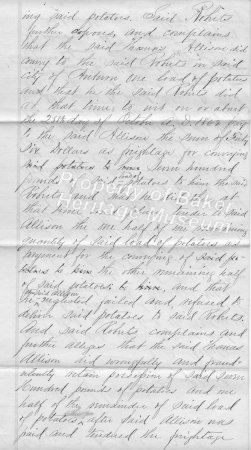 ing said potatoes. Said Rohels
further deposes, and complains
that the said Thomas Allison did
convey to the said Rohels in said
city of Auburn one load of potatoes
and that he the said Rohels did
at that time to wit on or about
the 25th day of October A.D. 1862 pay
to the said Allison the sum of Forty
Six Dollars as freightage for conveying
said potatoes to him Seven hundred
pounds potatoes to him the said
Rohels and that he
that time to said
Allison the one half of the remaining
quantity of said load of potatoes as
payment for the conveying of said po-
tatoes to him the other remaining half
of said potatoes to him, and that
he neglected failed and refused to
deliver said potatoes to said Rohels.
And said Rohels complains and
further alleges that the said Thomas
Allison did wrongfully and fraud-
ulently retain possession of said Seven
Hundred pounds of potatoes and one
half of the remainder of said load
of potatoes, after said Allison was
paid and tendered his freightage
Property of Baker
Heritage Museum